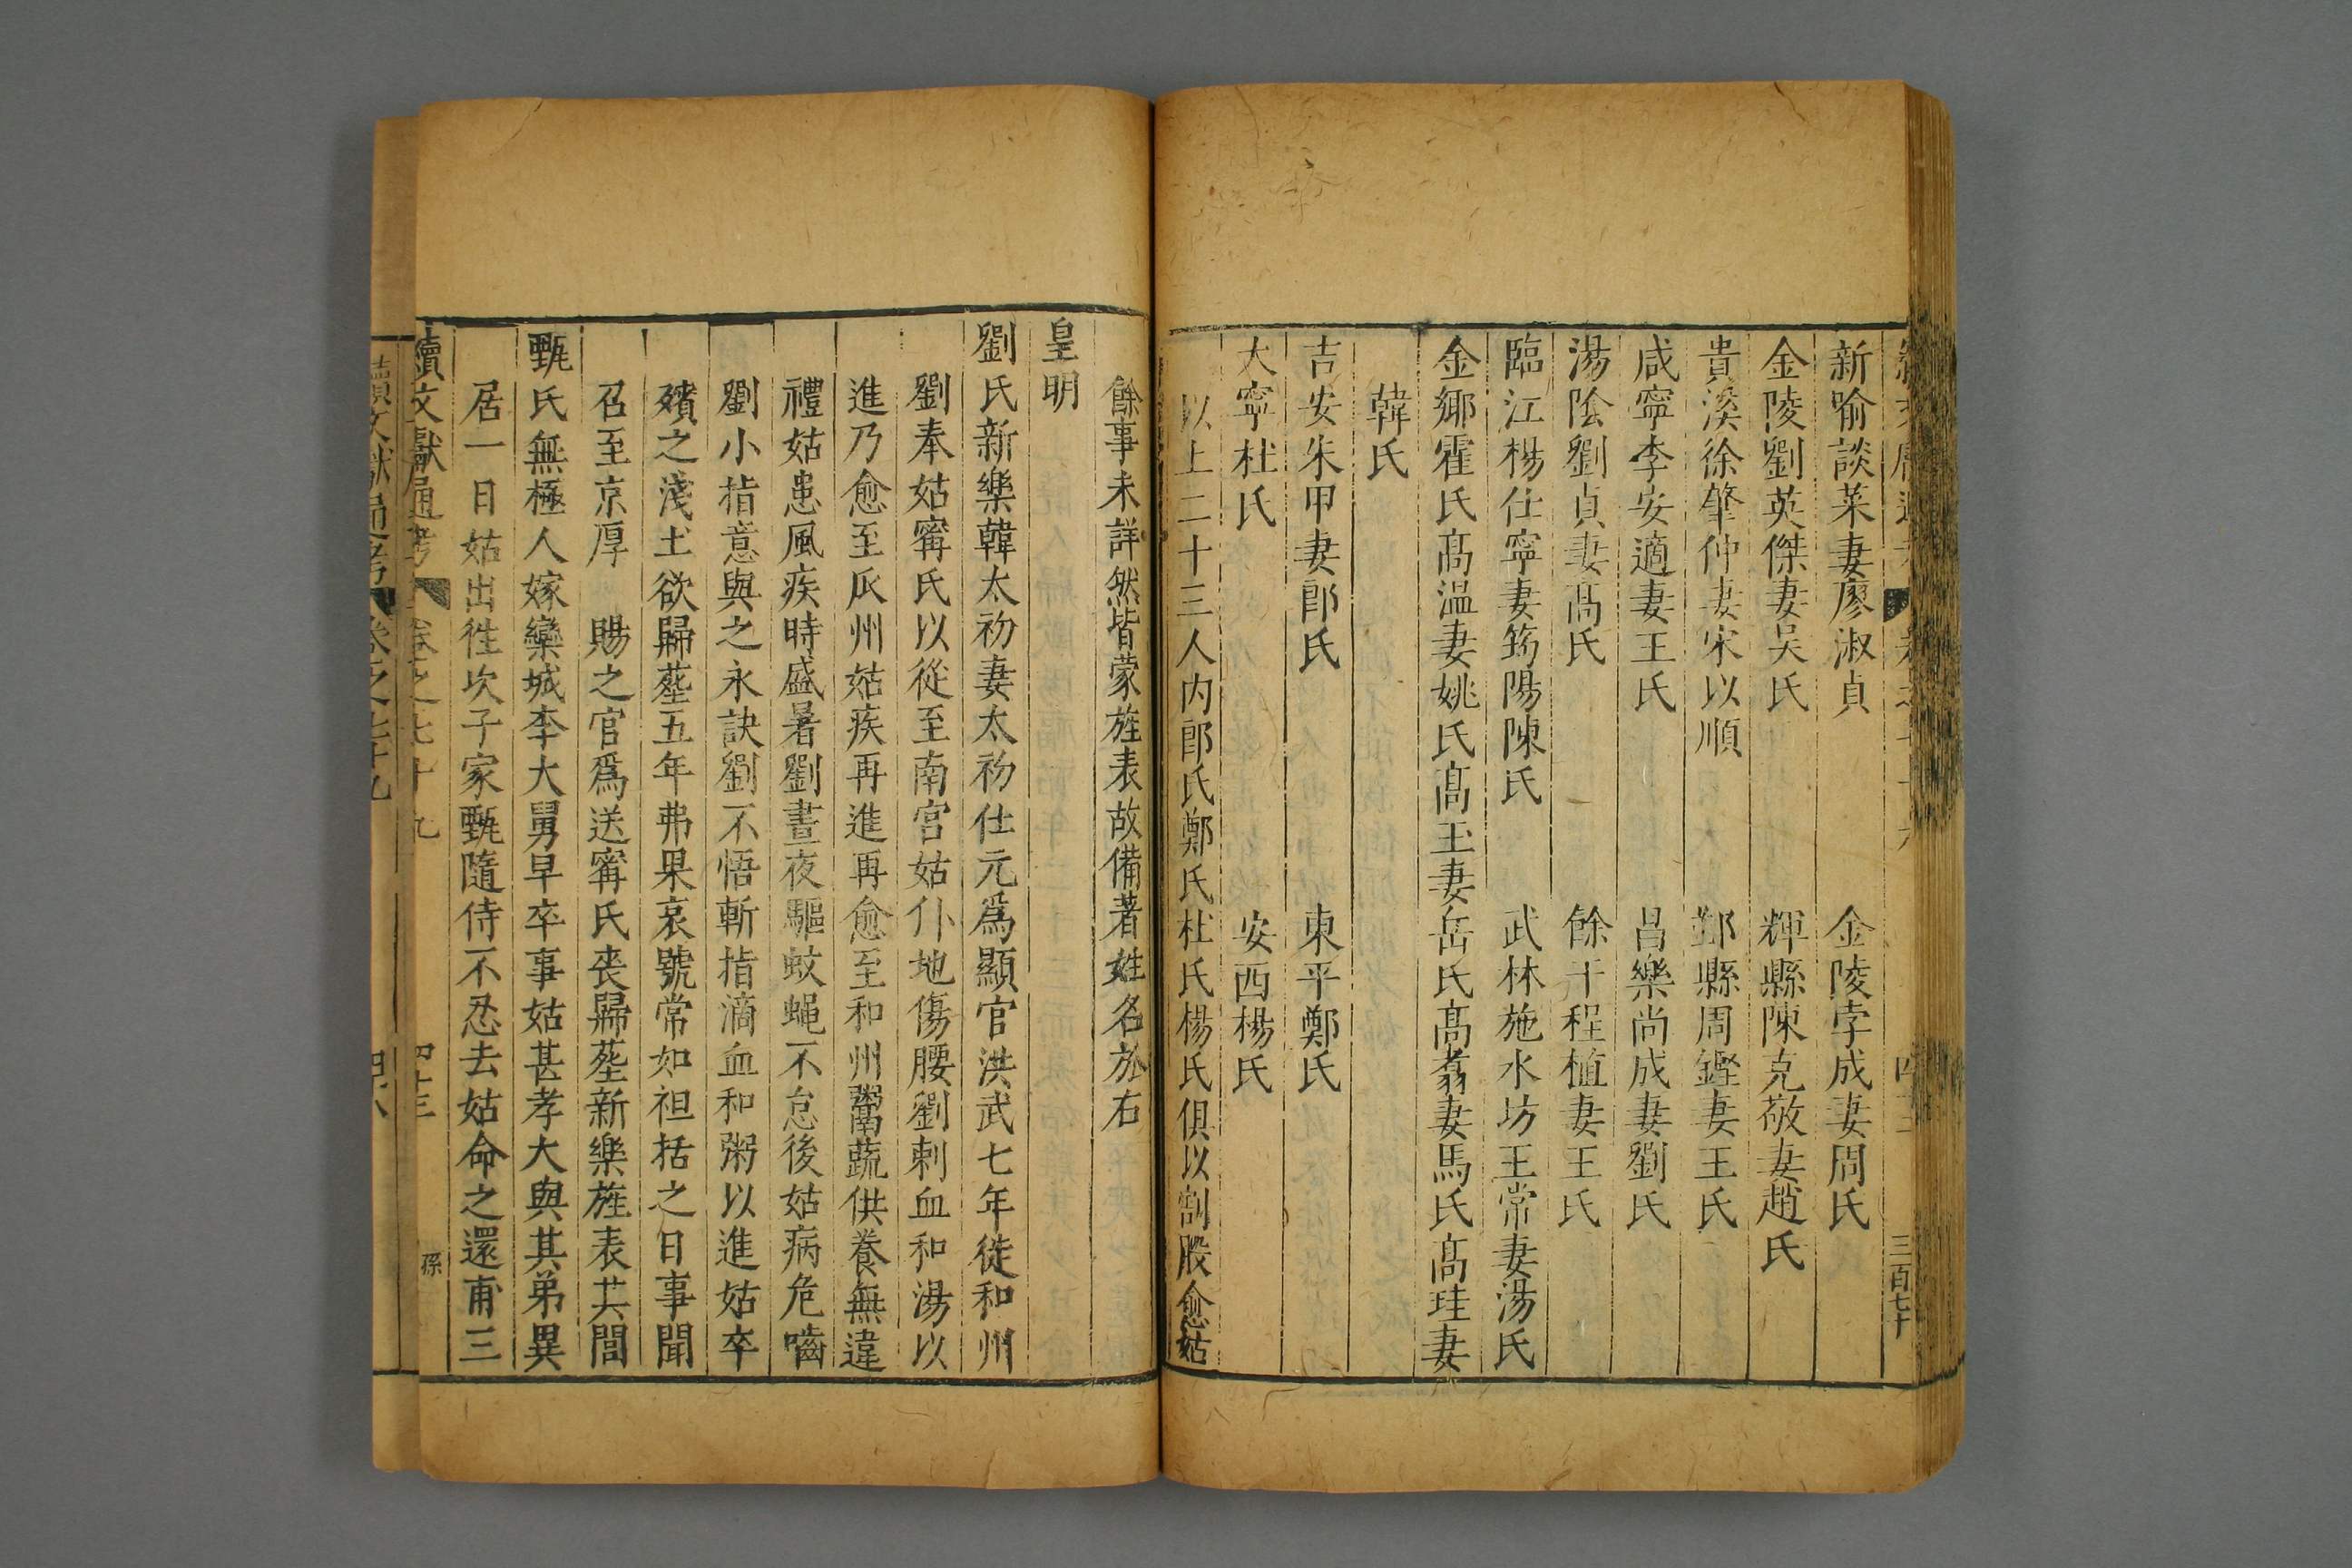 三百七十
新喻談菜妻廖淑貞 金陵李成妻周氏
金陵劉英傑妻吳氏 輝縣陳克敬妻趙氏
貴溪徐肇仲妻宋以順 鄞縣周鏗妻王氏
咸寧李安適妻王氏 昌樂尚成妻劉氏
湯陰劉貞妻髙氏 餘干程植妻王氏
臨江楊仕寧妻筠陽陳氏 武林施水坊王常妻湯氏
金鄉霍氏髙溫妻姚氏髙玉妻岳氏髙翥妻馬氏髙珪妻
韓氏
吉安朱甲妻郎氏 東平鄭氏
大寧杜氏 安西楊氏
以上二十三人内郎氏鄭氏杜氏楊氏俱以割股愈姑
餘事未詳然皆蒙旌表故備著姓名於右
皇明
劉氏新樂韓太初妻太初仕元爲顯官洪武七年徙和州
劉奉姑寗氏以從至南宫姑仆地傷腰劉刺血和湯以
進乃愈至瓜州姑疾再進再愈至和州鬻蔬供養無違
禮姑患風疾時盛暑劉晝夜驅蚊蝿不怠後姑病危嚙
劉小指意與之永訣劉不悟斬指滴血和粥以進姑卒
殯之淺土欲歸塟五年弗果哀號常如袒括之日事聞
召至京厚 賜之官爲送寗氏丧歸塟新樂旌表其閭
甄氏無極人嫁欒城李大舅早卒事姑甚孝大與其弟異
居一日姑出徃次子家甄隨侍不忍去姑命之還甫三
續文獻通考 卷之七十九 四十三 孫
續文獻通考 卷之七十九